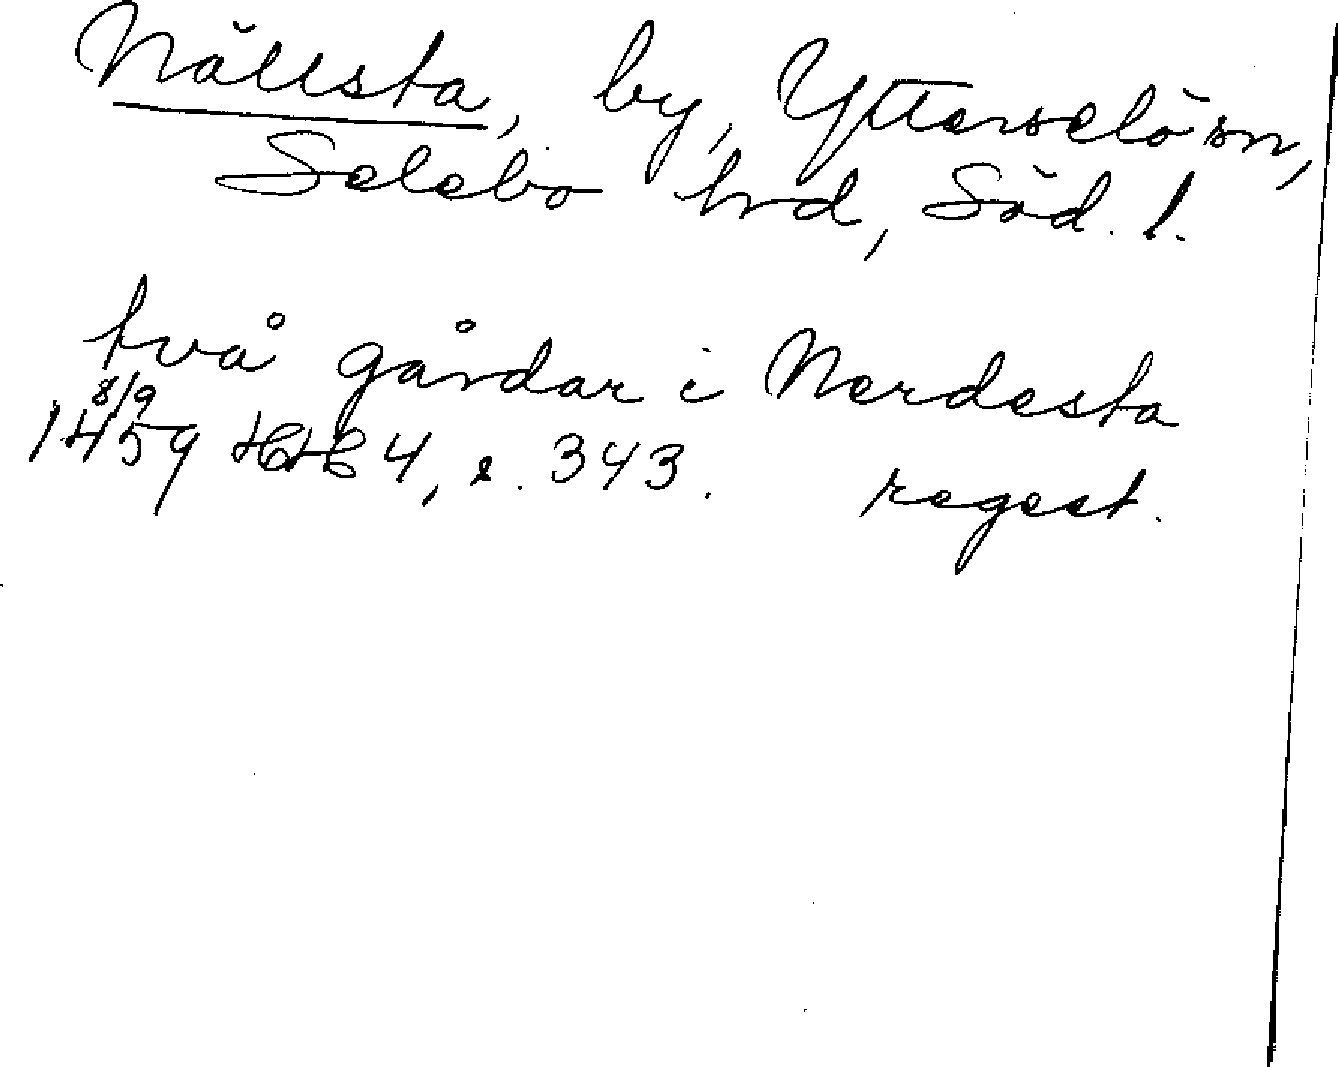 Nällsta, by, Ytterselö sn,
Selebo hrd, Söd. l.
två gårdar i Nerdesta
8/9
1459 HH 4, s. 343. regest.